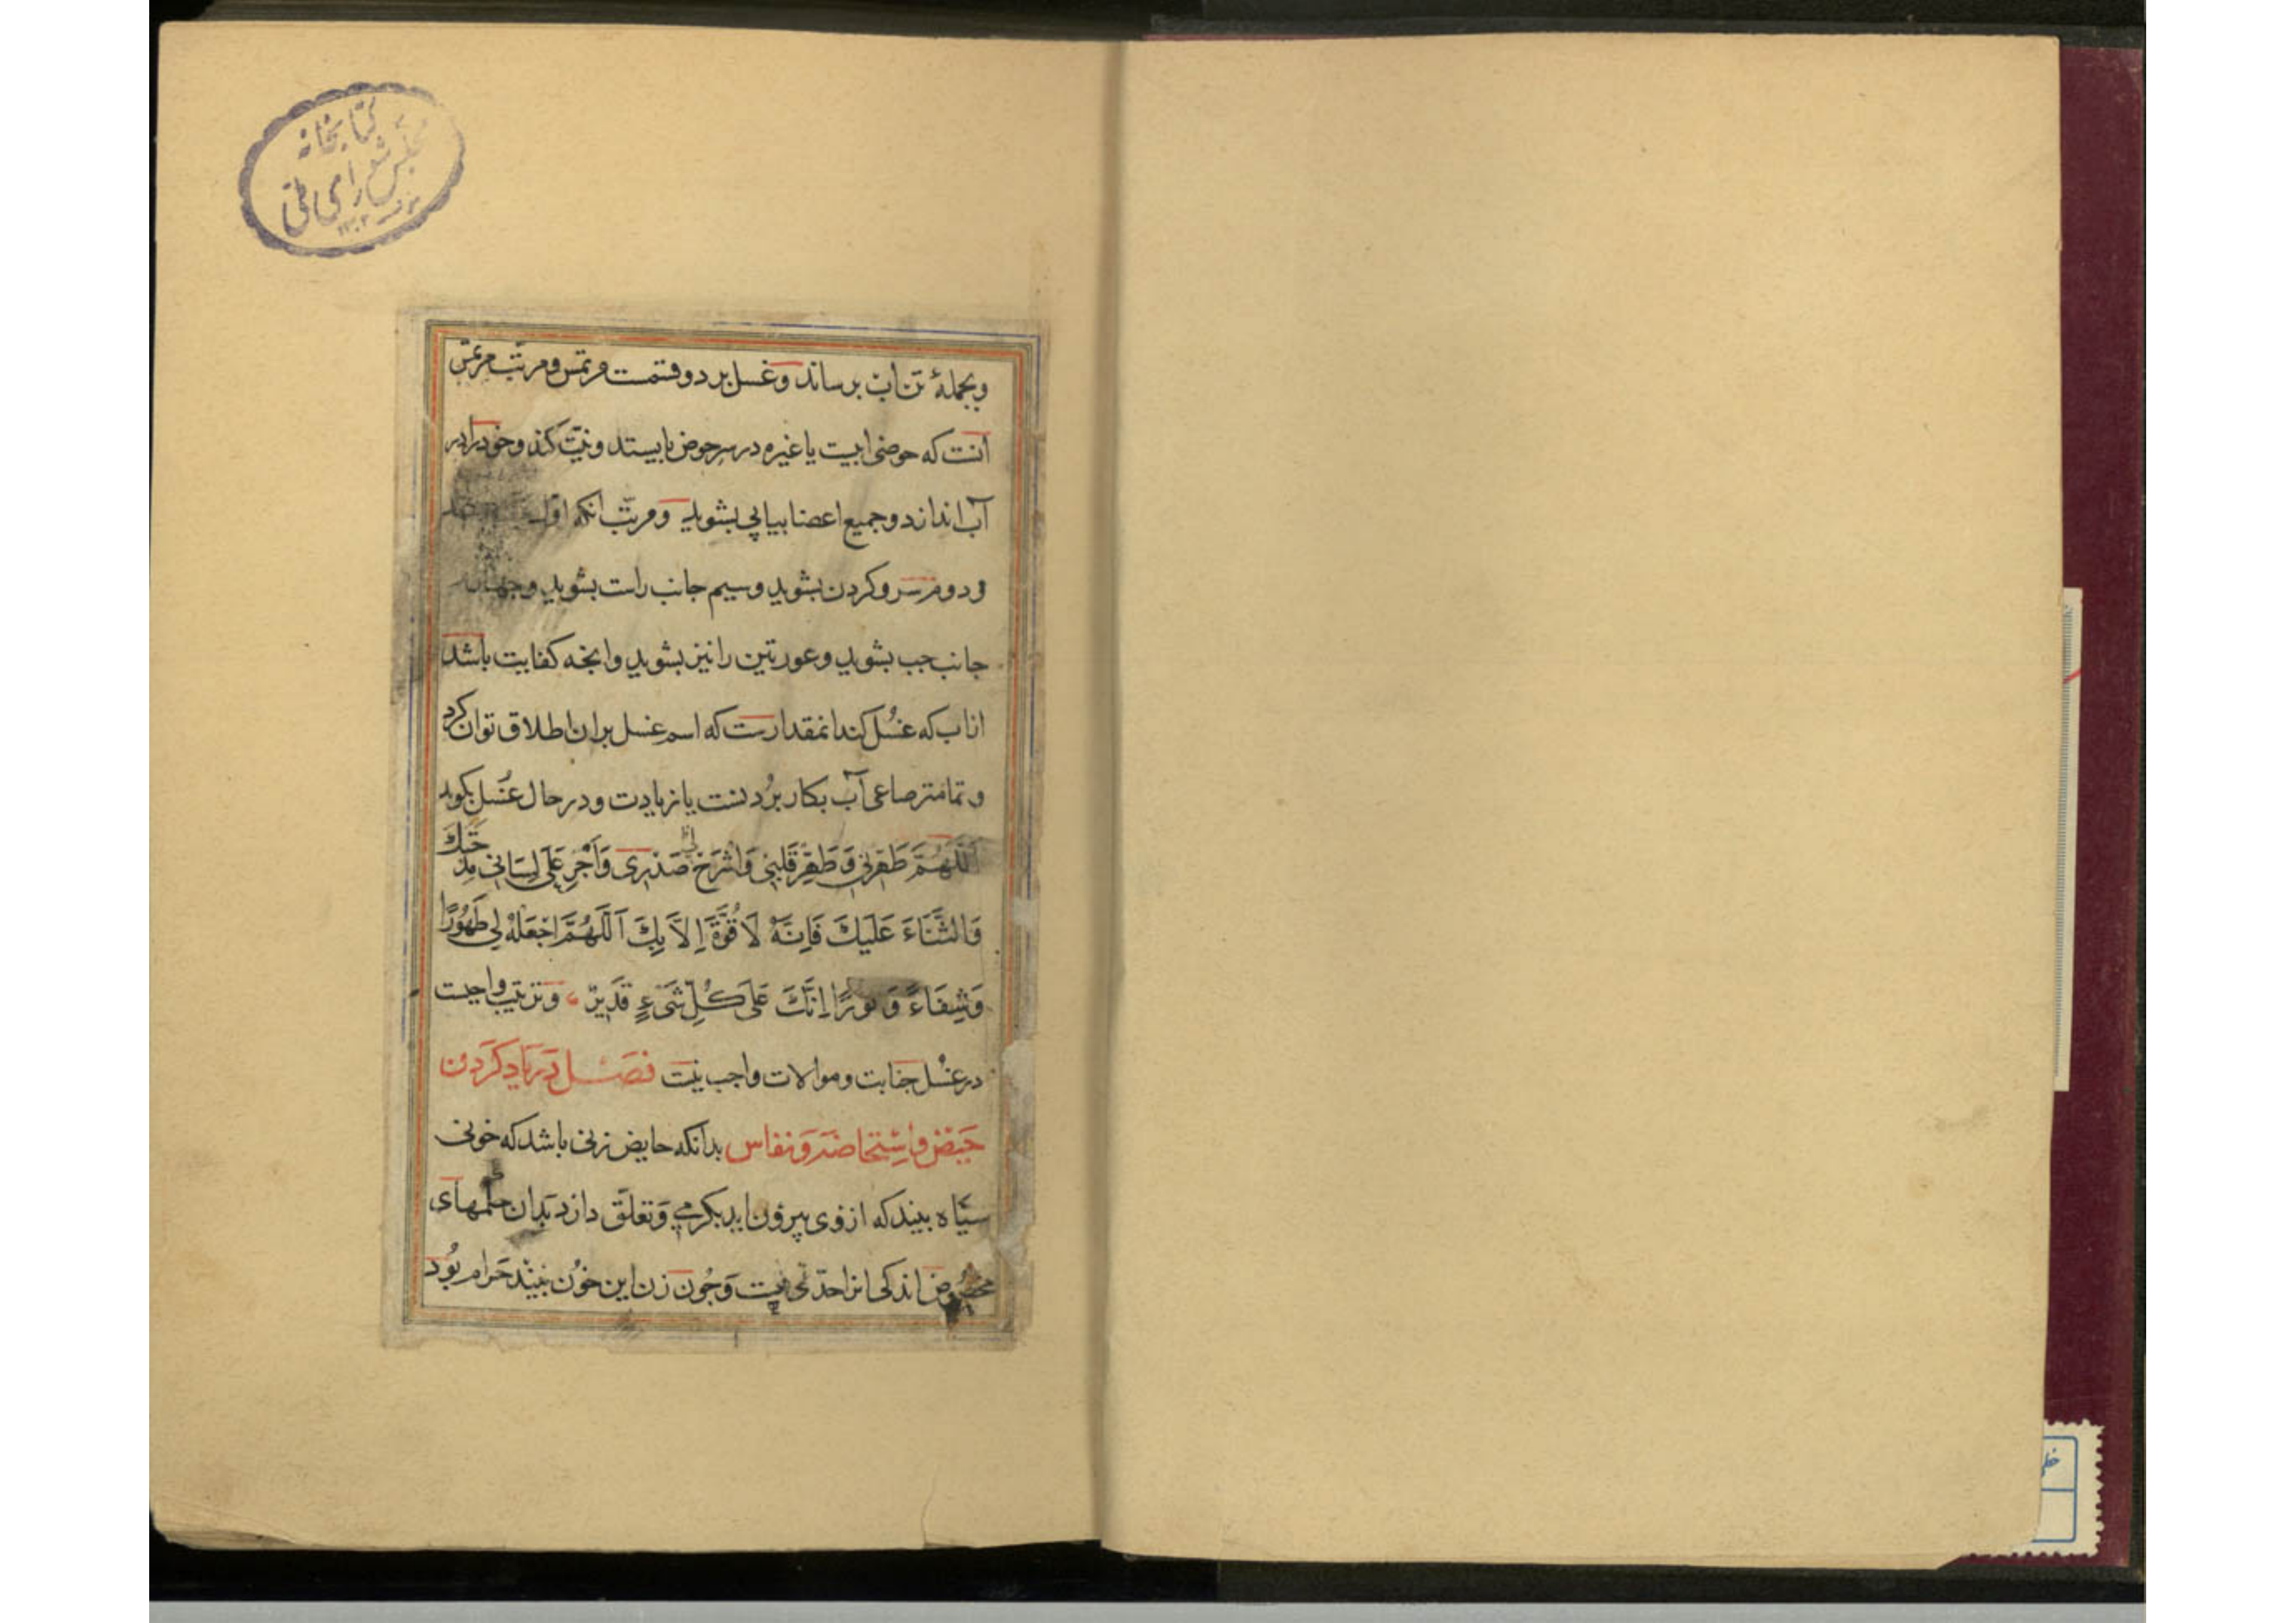 كتابخانه
مجلس شورای ملی
۱۳۰۲
وبجملهٔ تن اب برساند وغسل بر دو قسمست مرتمس ومرتب مرتمس
آنست که حوضی ابیت یا غیره در سر حوض بایستد ونیّت کند وخود را در
آب اندازد وجمیع اعضا بیاپی بشوید ومرتب انکه اول
ودوم سر وکردن بشوید وسیم جانب راست بشوید وجهارم
جانب جب بشوید وعورتین را نیز بشوید وانجه کفایت باشد
از اب که غُسل کند انمقدارست که اسم غسل بران اطلاق توان کرد
وتمامتر صاعی آب بکار بُردنست یا زیادت ودر حال غُسل بکوید
اَللّهُمَّ طَهِّرنی وَطَهِّر قَلبی وَاشْرَحْ لی صَدْری وَاَجْرِ عَلی لِسَانی مِدْحَتَكَ
وَالثَّنَاءَ عَلَيكَ فَاِنَّهُ لَا قُوَّةَ اِلاَّ بِكَ اَللّهُمَّ اجْعَلهُ لی طَهُورًا
وَشِفَاءً وَنُورًا اِنَّكَ عَلیَ كُلِّ شَیْءٍ قَدیرٌ وترتیب واجبست
در غُسل جنابت وموالات واجب نیست فصل در یاد کردن
حیض واستحاضه ونفاس بدانکه حایض زنی باشد که خونی
سیاه بیند که از وی بیرون اید بکرمی وتعلّق دارد بدان حکمهای
مخصوص اندکی انرا حدّی نیست وجُون زن این خون ببیند حرام بُود
خطی